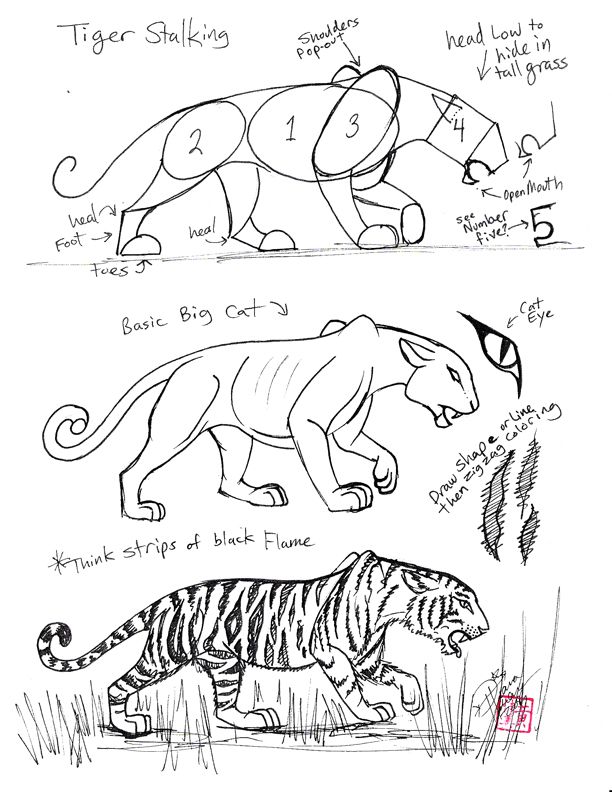 Tiger Stalking
Shoulders
Pop-out
head Low to
hide in
tall grass
2
1
3
4
heal
Foot
toes
heal
open Mouth
see
Number
five?
5
Basic Big Cat
Cat
Eye
Draw shape or Line
then zig zag coloring
*Think strips of black Flame